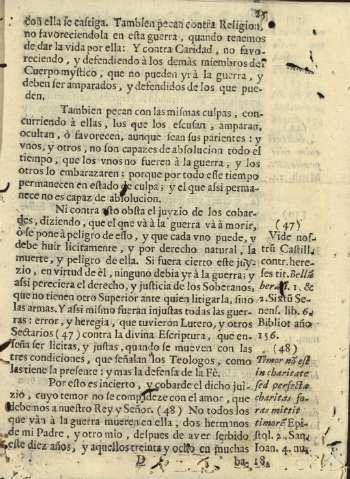 con ella se castiga. Tambien pecan contra Religion,
no favoreciendola en esta guerra, quando tenemos
de dar la vida por ella: Y contra Caridad, no favo-
reciendo, y defendiendo à los demàs miembros del
Cuerpo mystico, que no pueden yr à la guerra, y
deben ser amparados, y defendidos de los que pue-
den.
Tambien pecan con las mismas culpas, con-
curriendo à ellas, los que los escusan, amparan,
ocultan, ò favorecen, aunque sean sus parientes: y
vnos, y otros, no son capazes de absolucion todo el
tiempo, que los vnos no fueren à la guerra, y los
otros lo embarazaren: porque todo este tiempo
permanecen en estado de culpa; y el que assi perma-
nece no es capaz de absolucion.
Ni contra esto obsta el juyzio de los cobar-
des, diziendo, que el que và à la guerra và à morir,
ò se pone à peligro de esso, y que cada vno puede, y
debe huir licitamente, y por derecho natural, la
muerte, y peligro de ella. Si fuera cierto este juy-
zio, en virtud de èl, ninguno debia yr à la guerra; y
assi pereciera el derecho, y justicia de los Soberanos,
que no tienen otro Superior ante quien litigarla, sino
las armas. Y assi mismo fueran injustas todas las guer-
ras: error, y heregia, que tuvieron Lutero, y otros
Sectarios (47) contra la divina Escriptura, que en-
seña ser licitas, y justas, quando se mueven con las
tres condiciones, que señalan los Teologos, como
las tiene la presente: y mas la defensa de la Fè.
Por esto es incierto, y cobarde el dicho jui-
zio, cuyo temor no se compadeze con el amor, que
debemos a nuestro Rey y Señor. (48) No todos los
que vàn à la guerra mueren en ella, dos hermanos
de mi Padre, y otro mio, despues de aver servido
este diez años, y aquellos treinta y ocho en muchas
ba-
(47)
Vide nos-
trũ Castill.
contr. here-
ses tit. Bellũ
1. &
2. Sixtũ Se-
nens. lib. 6.
Bibliot año
156.
(48)
Timor nõ est
in charitate
sed perfecta
charitas fo-
ras mittit
timorẽ Epi-
stol. 2. San.
Ioan. 4. nu.
18.